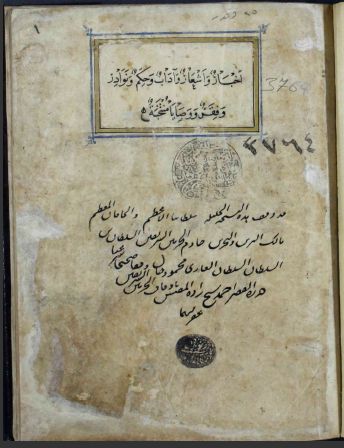 ١
اخبار واشعار وآداب وحكم ونوادر
وفقر ووصايا منتخبة
3764
٣٧٦٤
قد وقف هذه النسخة الجليلة سلطاننا الاعظم والخاقان المعظم
مالك البرين والبحرين خادم الحرمين الشريفين السلطان بن
السلطان السلطان الغازى محمود خان وقفا صحيحا شرعيا
حرره الفقير احمد شيخ زاده المفتش باوقاف الحرمين الشريفين
غفر لهما